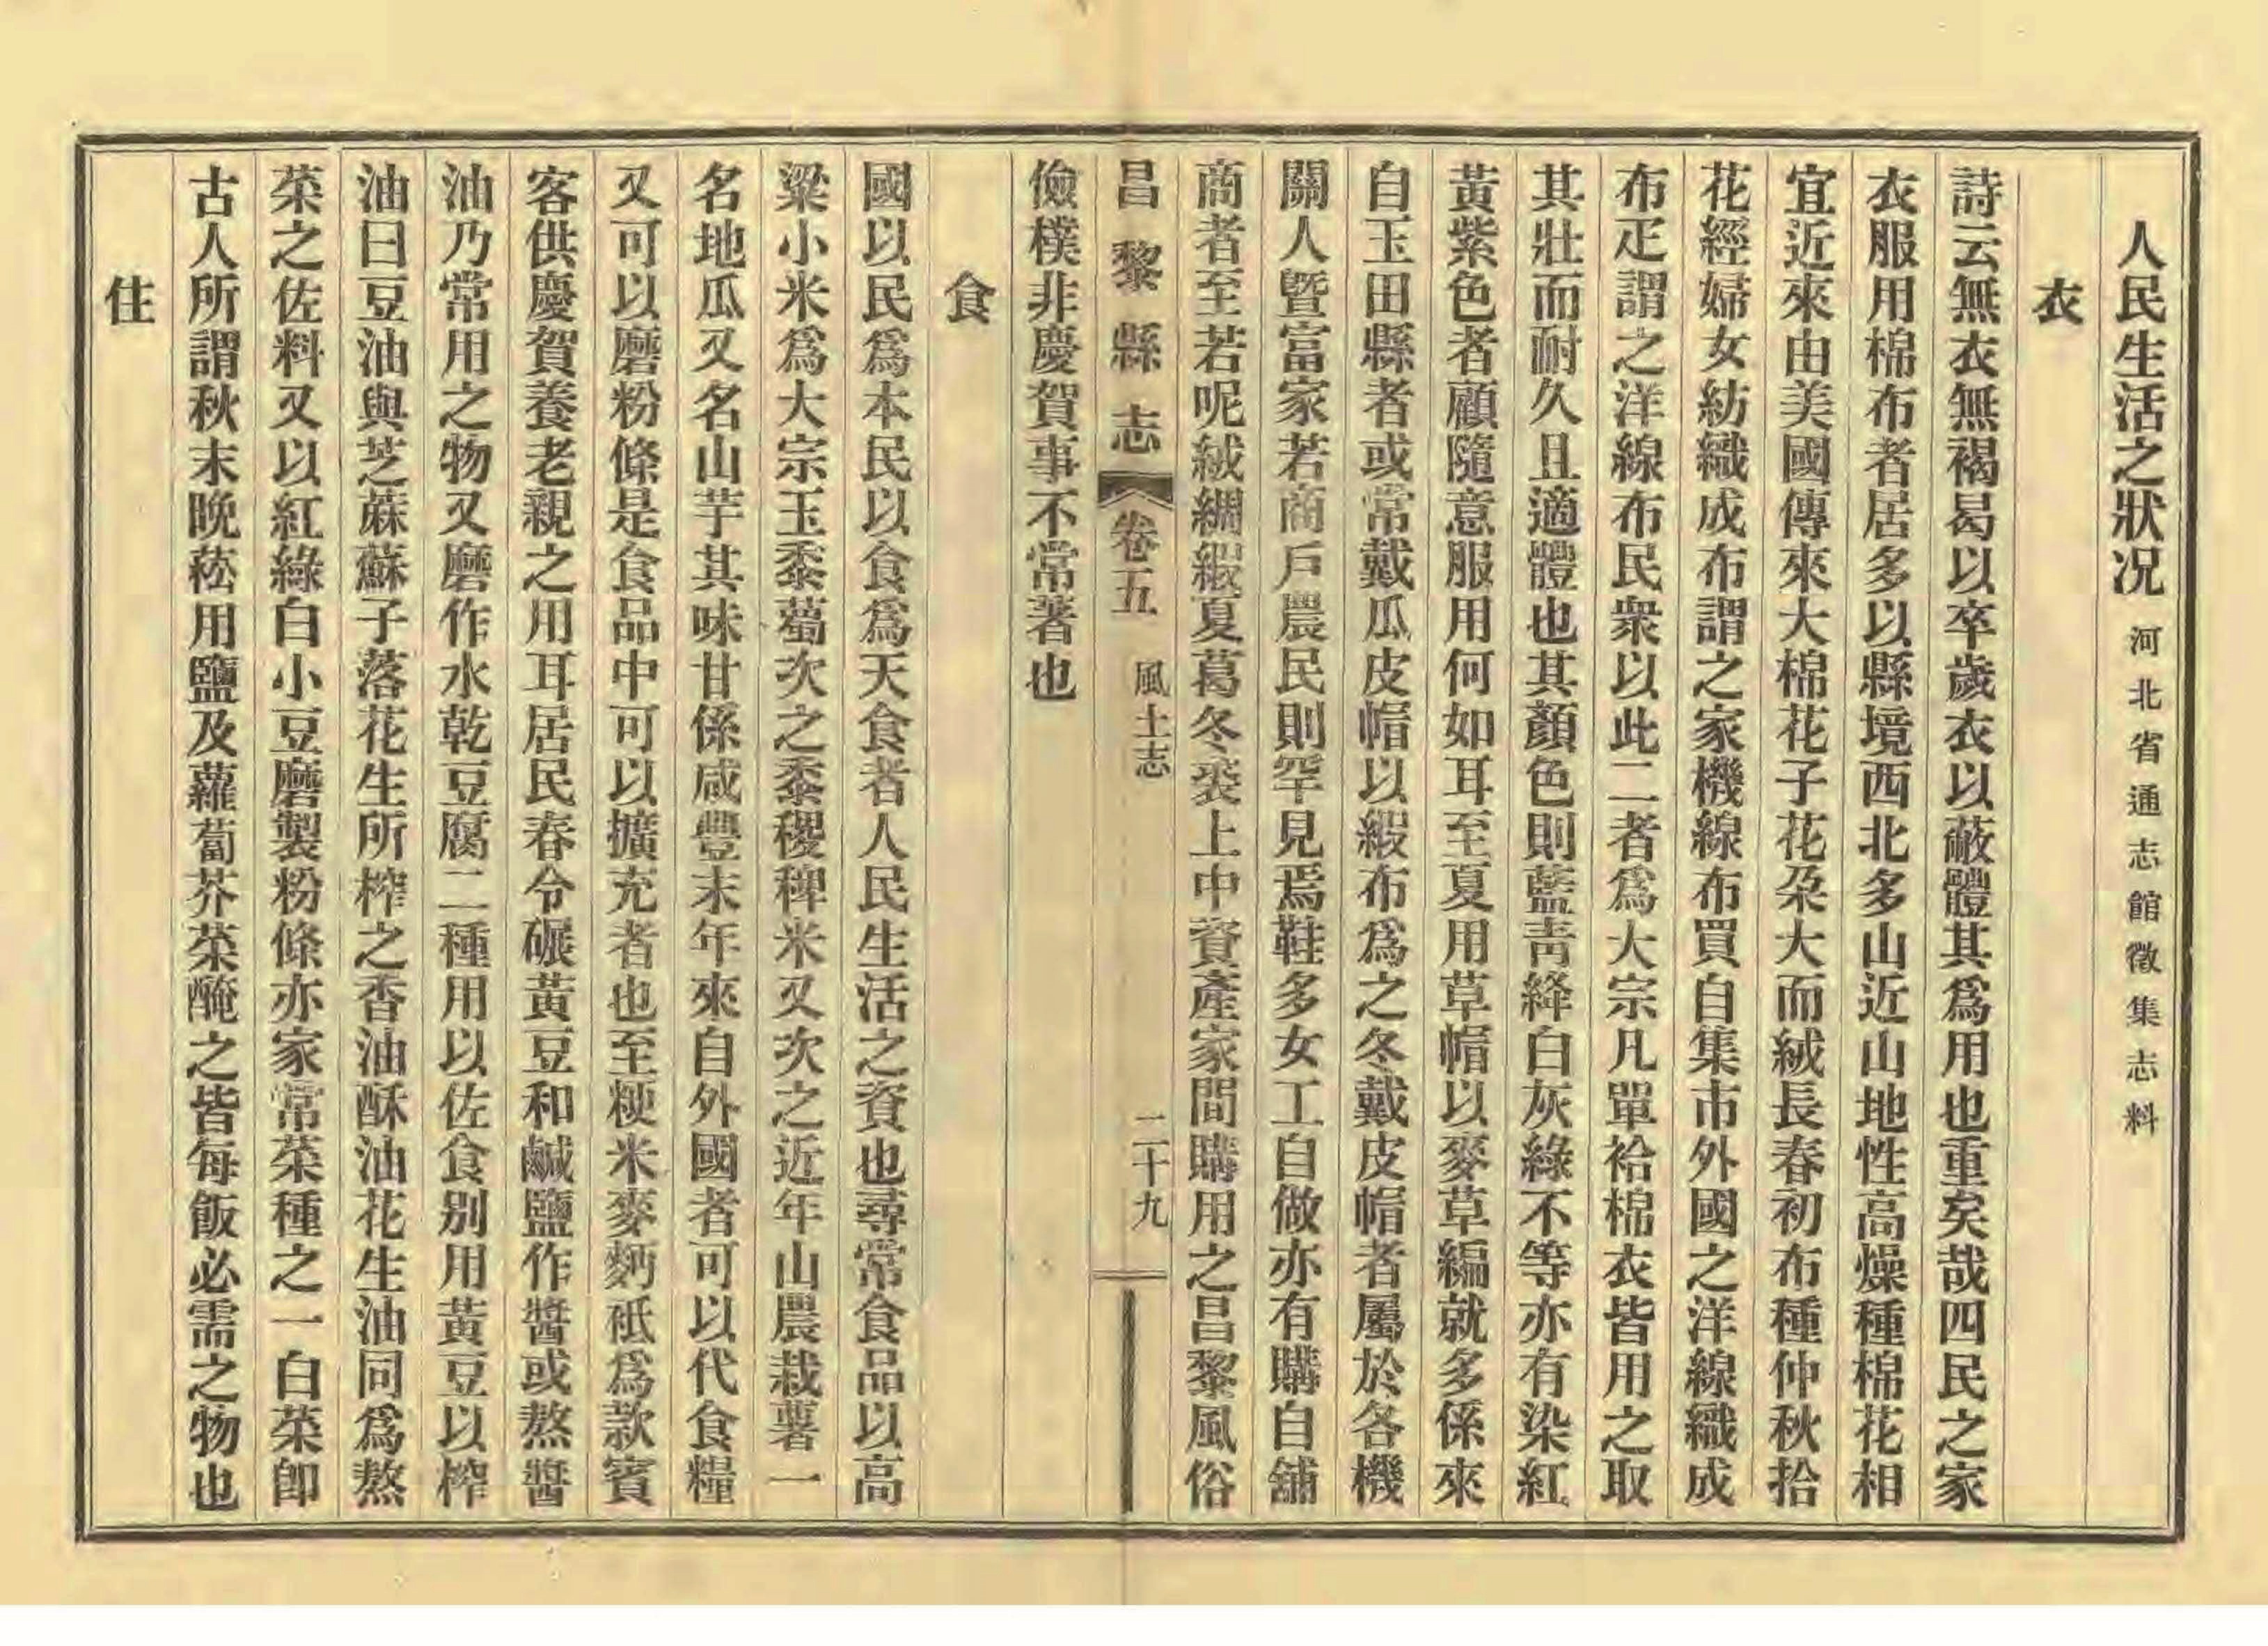 人民生活之狀況 河北省通志館徵集志料
衣
詩云無衣無褐曷以卒歲衣以蔽體其爲用也重矣哉四民之家
衣服用棉布者居多以縣境西北多山近山地性高燥種棉花相
宜近來由美國傳來大棉花子花朶大而絨長春初布種仲秋拾
花經婦女紡織成布謂之家機線布買自集市外國之洋線織成
布疋謂之洋線布民衆以此二者爲大宗凡單袷棉衣皆用之取
其壯而耐久且適體也其顏色則藍靑絳白灰綠不等亦有染紅
黃紫色者顧隨意服用何如耳至夏用草帽以麥草編就多係來
自玉田縣者或常戴瓜皮帽以緞布爲之冬戴皮帽者屬於各機
關人曁富家若商戶農民則罕見焉鞋多女工自做亦有購自舖
商者至若呢絨綢緞夏葛冬裘上中資產家間購用之昌黎風俗
儉樸非慶賀事不常著也
昌黎縣志 卷五 風土志 二十九
食
國以民爲本民以食爲天食者人民生活之資也尋常食品以高
粱小米爲大宗玉黍蔔次之黍稷稗米又次之近年山農栽薯一
名地瓜又名山芋其味甘係咸豐末年來自外國者可以代食糧
又可以磨粉條是食品中可以擴充者也至粳米麥麪祇爲款賓
客供慶賀養老親之用耳居民春令碾黃豆和鹹鹽作醬或熬醬
油乃常用之物又磨作水乾豆腐二種用以佐食別用黃豆以榨
油曰豆油與芝蔴蘇子落花生所榨之香油酥油花生油同爲熬
菜之佐料又以紅綠白小豆磨製粉條亦家常菜種之一白菜卽
古人所謂秋末晚菘用鹽及蘿蔔芥菜醃之皆每飯必需之物也
住